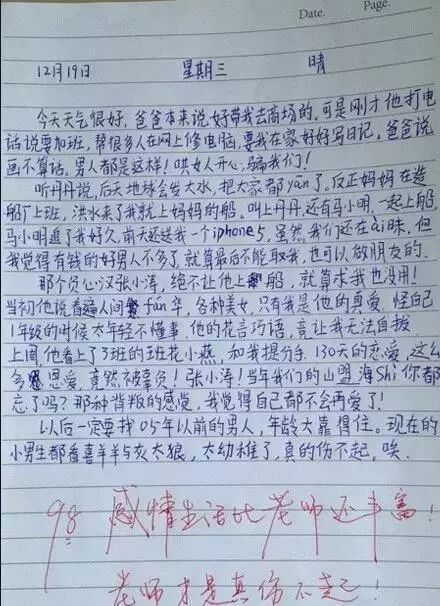 Date. Page.
12月19日 星期三 晴
今天天气很好,爸爸本来说好带我去商场的,可是刚才他打电
话说要加班,帮很多人在网上修电脑,要我在家好好写日记,爸爸说
画不算话。男人都是这样!哄女人开心,骗我们!
听丹丹说,后天地球会发大水,把大家都yān了。反正妈妈在造
船厂上班,洪水来了我就上妈妈的船。叫上丹丹,还有马小明,一起上船,
马小明追了我好久,前天还送我一个iphone5,虽然我们还在ài昧,但
我觉得有钱的好男人不多了,就算最后不能取我,也可以做朋友的。
那个负心汉张小涛,绝不让他上船,就算求我也没用!
当初他说看遍人间fán华,各种美女,只有我是他的真爱,怪自己
1年级的时候太年轻不懂事,他的花言巧语,竟让我无法自拔
上周他看上了3班的班花小燕,和我提分手,130天的恋爱,这么
多恩爱,竟然被辜负!张小涛!当年我们的山盟海Shì你都
忘了吗?那种背叛的感觉,我觉得自己都不会再爱了!
以后一定要找05年以前的男人,年龄大靠得住。现在的
小男生都看喜羊羊与灰太狼,太幼稚了,真的伤不起,唉.
98 感情生活比老师还丰富!
老师才是真伤不起!